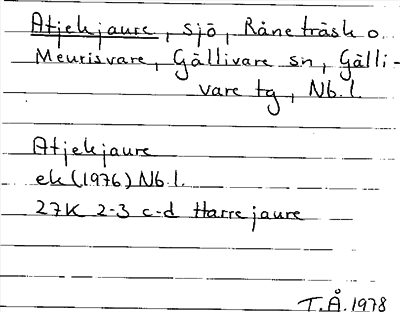 Atjekjaure, sjö, Råneträsk o.
Meurisvare, Gällivare sn, Gälli-
vare tg, Nb.l.
Atjekjaure
ek (1976) Nb.l.
27K 2-3 c-d Harrejaure
T.Å. 1978